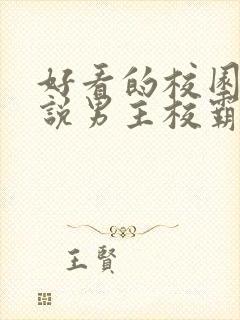 好看的校园
說男主校霸
王賢